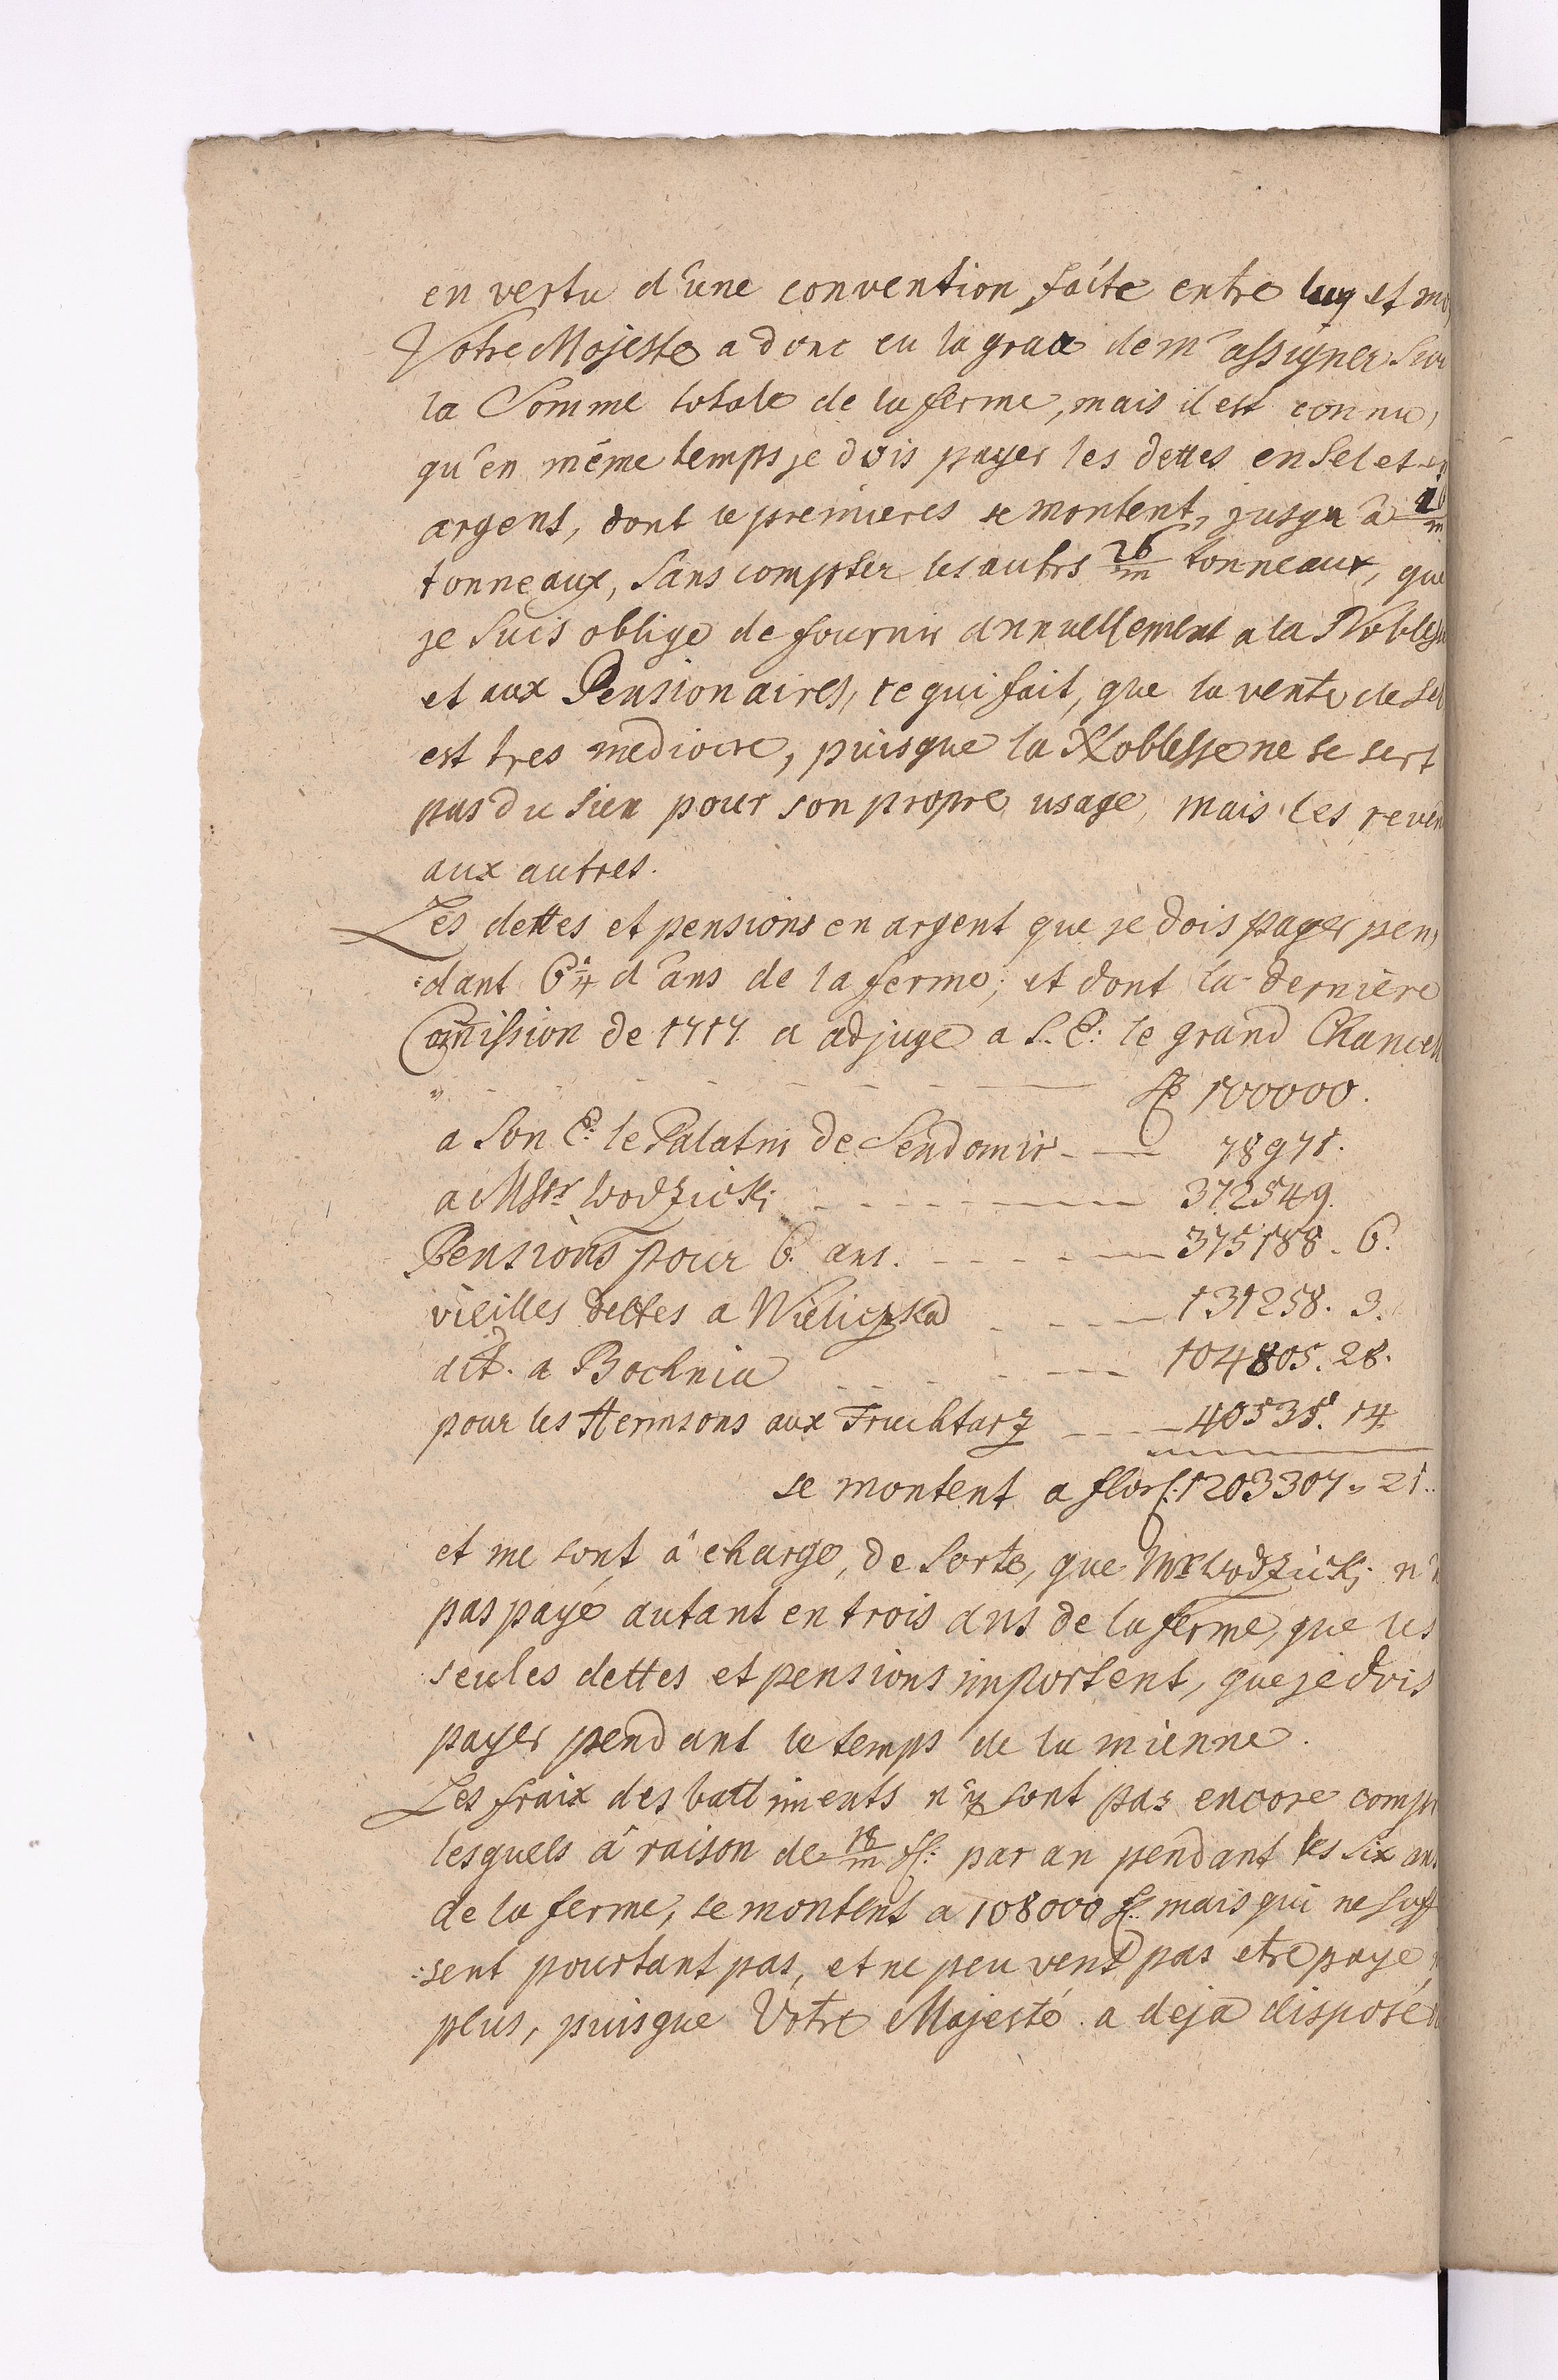 en vertu d'une convention faite entre luy et mo
Votre Majeste a donc eu la grace de m'assigner Sur
la Somme totale de la ferme, mais il est connu,
qu'en même temps je dois payer les dettes en Sel et en
argent, dont le premieres se montent, jusqu'à
tonneaux, Sans compter les autrs 26/m tonneaux, que
je Suis oblige de fournir annuellement a la Nobless
et aux Pensionaires, ce qui fait, que la vente de Sel
est tres mediocre, puisque la Noblesse ne se sert
pas du Sien pour son propre usage, mais les reven
aux autres.
Les dettes et pensions en argent que je dois payer pen,
:dant 6 1/4 d'ans de la ferme; et dont la derniere
Comission de 1717. a adjuge a S. E: le grand Chancell
" - - - - - - - fl 100000.
a Son E: le Palatin de Sendomir - - 78971.
a Msr Wodzicki - - - - - 372549.
Pensions pour 6. ans. - - - - 375188. 6.
vieilles dettes a Wieliczka - - - 131258. 3.
dit. a Bochnia - - - - 104805. 28.
pour les Hermsons aux Fruchtarz - - - 40535. 14.
se montent a flor: 1203307. 21.
et me sont à charge, de Sorte, que Mr Wodzicki n'a
pas payé autant en trois ans de la ferme, que les
seules dettes et pensions importent, que je dois
payer pendant le temps de la mienne.
Les fraix des battiments n'y sont pas encore compr
lesquels à raison de 18/m fl: par an pendant les Six ans
de la ferme, se montent a 108000 fl: mais qui ne Suff
:sent pourtant pas, et ne peuvent pas etre paye
plus, puisque Votre Majesté a deja disposé